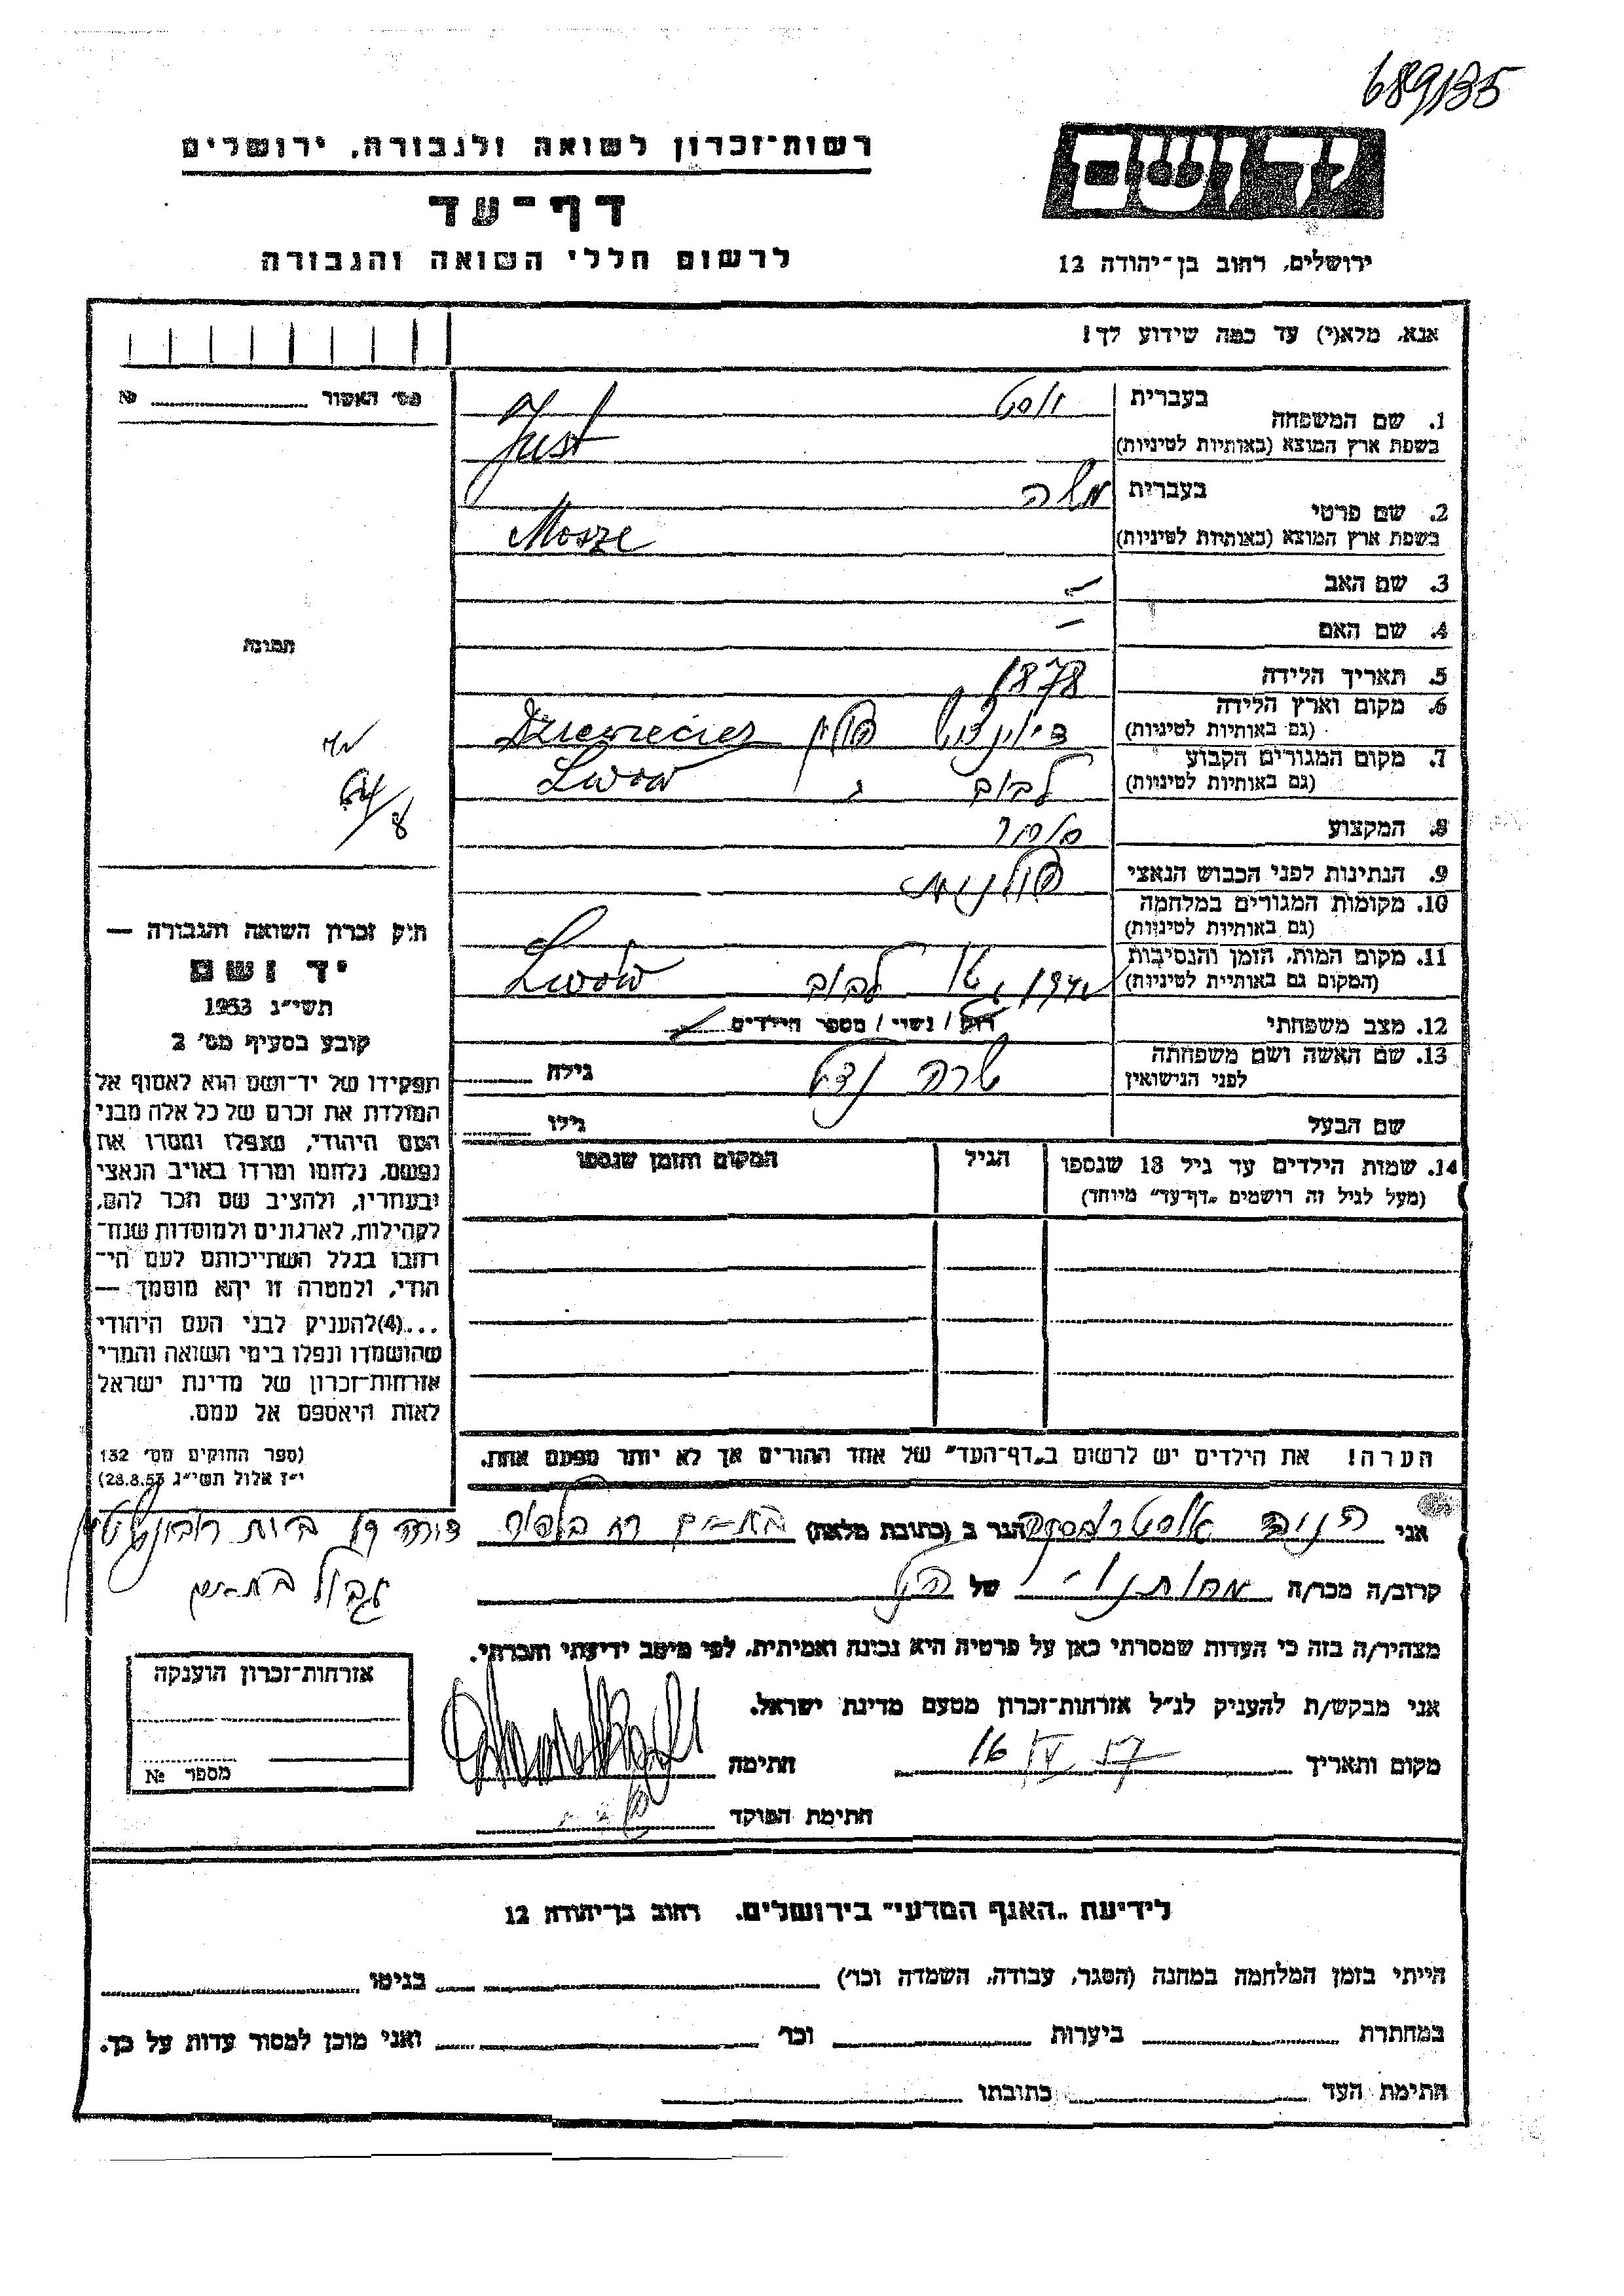 689/135
רשות־זכרון לשואה ולגבורה, ירושלים
דף־עד
לרשום חללי השואה והגבורה
יד ושם
ירושלים, רחוב בן־יהודה 12
אנא, מלא(י) עד כמה שידוע לך!
מס׳ האשור №
1. שם המשפחה בעברית יוסט
בשפת ארץ המוצא (באותיות לטיניות) Just
2. שם פרטי בעברית משה
בשפת ארץ המוצא (באותיות לטיניות) Mosze
3. שם האב –
4. שם האם –
תמונה
5. תאריך הלידה 1878
6. מקום וארץ הלידה
(גם באותיות לטיניות) פולין
7. מקום המגורים הקבוע
(גם באותיות לטיניות) לבוב Lwow
8. המקצוע סוחר
9. הנתינות לפני הכבוש הנאצי פולנית
10. מקומות המגורים במלחמה
(גם באותיות לטיניות)
11. מקום המות, הזמן והנסיבות
(המקום גם באותיות לטיניות) לבוב Lwow
12. מצב משפחתי רווק / נשוי / מספר הילדים
13. שם האשה ושם משפחתה
לפני הנישואין שרה גילה
שם הבעל גילו
14. שמות הילדים עד גיל 18 שנספו הגיל המקום והזמן שנספו
(מעל לגיל זה רושמים „דף־עד״ מיוחד)
חוק זכרון השואה והגבורה —
יד ושם
תשי״ג 1953
קובע בסעיף מס׳ 2
תפקידו של יד־ושם הוא לאסוף אל
המולדת את זכרם של כל אלה מבני
העם היהודי, שנפלו ומסרו את
נפשם, נלחמו ומרדו באויב הנאצי
ובעוזריו, ולהציב שם וזכר להם,
לקהילות, לארגונים ולמוסדות שנח־
רחבו בגלל השתייכותם לעם הי־
הודי, ולמטרה זו יהא מוסמך —
...(4)להעניק לבני העם היהודי
שהושמדו ונפלו בימי השואה והמרי
אזרחות־זכרון של מדינת ישראל
לאות היאספם אל עמם.
(ספר החוקים מס׳ 132
י״ז אלול תשי״ג 28.8.53)
הערה! את הילדים יש לרשום ב„דף־העד״ של אחד ההורים אך לא יותר מפעם אחת.
אני הגר ב (כתובת מלאה) בת־ים רח בלפור
גבול בת־ים
קרוב/ה מכר/ה של הנ״ל
מצהיר/ה בזה כי העדות שמסרתי כאן על פרטיה היא נכונה ואמיתית, לפי מיטב ידיעתי והכרתי.
אני מבקש/ת להעניק לנ״ל אזרחות־זכרון מטעם מדינת ישראל.
מקום ותאריך 16 IV 57 חתימה
חתימת הפוקד
אזרחות־זכרון הוענקה
מספר №
לידיעת „האגף המדעי״ בירושלים, רחוב בן־יהודה 12
הייתי בזמן המלחמה במחנה (הסגר, עבודה, השמדה וכו׳) בגיטו
במחתרת ביערות וכו׳ ואני מוכן למסור עדות על כך.
חתימת העד כתובתו